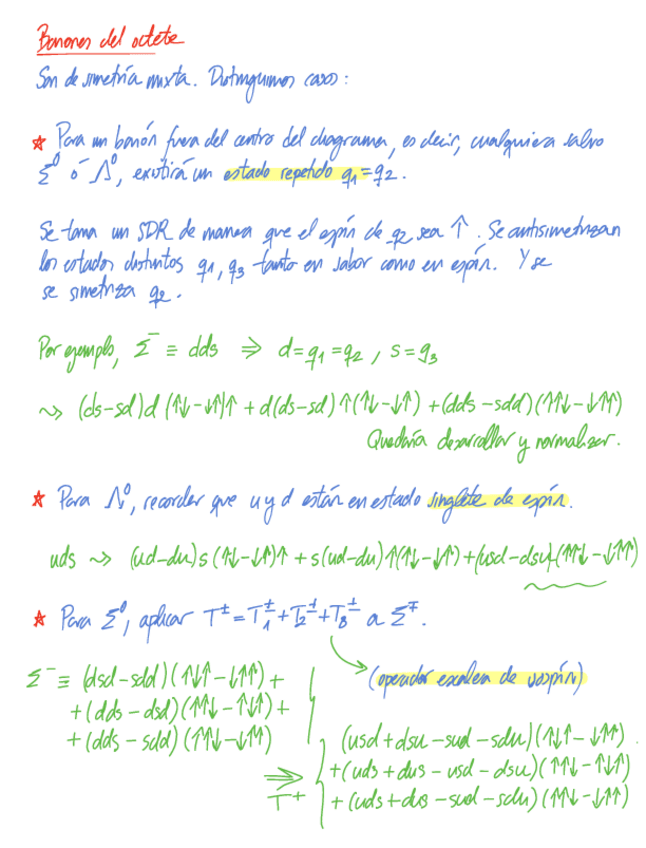 Bariones del octete
Son de simetría mixta. Distinguimos casos:
* Para un barión fuera del centro del diagrama, es decir, cualquiera salvo
Σ⁰ ó Λ⁰, existirá un estado repetido q1=q2.
Se toma un SDR de manera que el espín de q2 sea ↑. Se antisimetrizan
los estados distintos q1, q3 tanto en sabor como en espín. Y se
se simetriza q2.
Por ejemplo, Σ⁻ ≡ dds ⇒ d=q1=q2, s=q3
⇝ (ds-sd)d(↑↓-↓↑)↑ + d(ds-sd)↑(↑↓-↓↑) + (dds-sdd)(↑↑↓-↓↑↑)
Quedaría desarrollar y normalizar.
* Para Λ⁰, recordar que u y d están en estado singlete de espín.
uds ⇝ (ud-du)s(↑↓-↓↑)↑ + s(ud-du)↑(↑↓-↓↑) + (usd-dsu)(↑↑↓-↓↑↑)
* Para Σ⁰, aplicar T± = T1± + T2± + T3± a Σ∓.
(operador escalera de isospín)
Σ⁻ ≡ (dsd-sdd)(↑↓↑-↓↑↑) +
+(dds-dsd)(↑↑↓-↑↓↑) +
+(dds-sdd)(↑↑↓-↓↑↑)
⇒ T⁺
(usd+dsu-sud-sdu)(↑↓↑-↓↑↑)
+(uds+dus-usd-dsu)(↑↑↓-↑↓↑)
+(uds+dus-sud-sdu)(↑↑↓-↓↑↑)